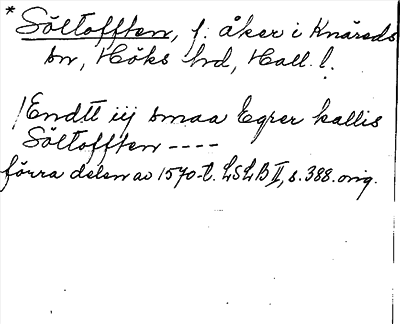 * Söltofften, f. åker i Knäreds
sn, Höks hd, Hall. l.
/Endtt iij smaa Egrer kallis
Söltofften ----
förra delen av 1570-t. LSLB II, s. 388. orig.